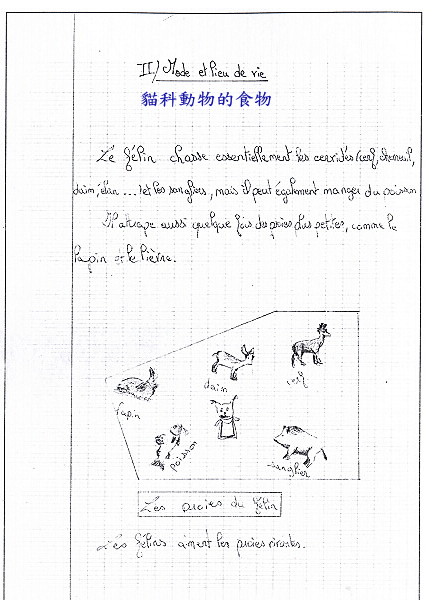 II) Mode et lieu de vie
貓科動物的食物
Le félin chasse essentiellement les cervidés (cerf, chevreuil,
daim, élan ... ) et les sangliers, mais il peut également manger du poisson
Il attrape aussi quelque fois des proies plus petites, comme le
lapin et le lièvre.
cerf
daim
lapin
poisson
sanglier
Les proies du félin
Les félins aiment les proies vivantes.